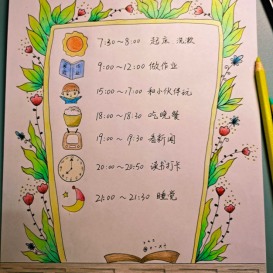 7:30~8:00 起床 洗漱
9:00~12:00 做作业
15:00~17:00 和小伙伴玩
18:00~18:30 吃晚餐
19:00~19:30 看新闻
20:00~20:50 读书打卡
21:00~21:30 睡觉